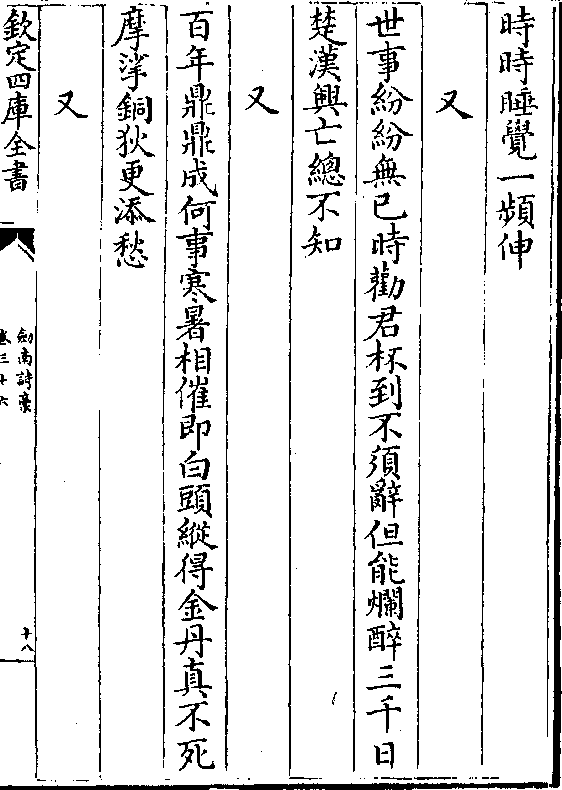 時時睡覺一頻伸
又
世事紛紛無已時勸君杯到不須辭但能爛醉三千日
楚漢興亡總不知
又
百年鼎鼎成何事寒暑相催即白頭縱得金丹真不死
摩挲銅狄更添愁
又
欽定四庫全書
劍南詩藳
卷三十六
十八